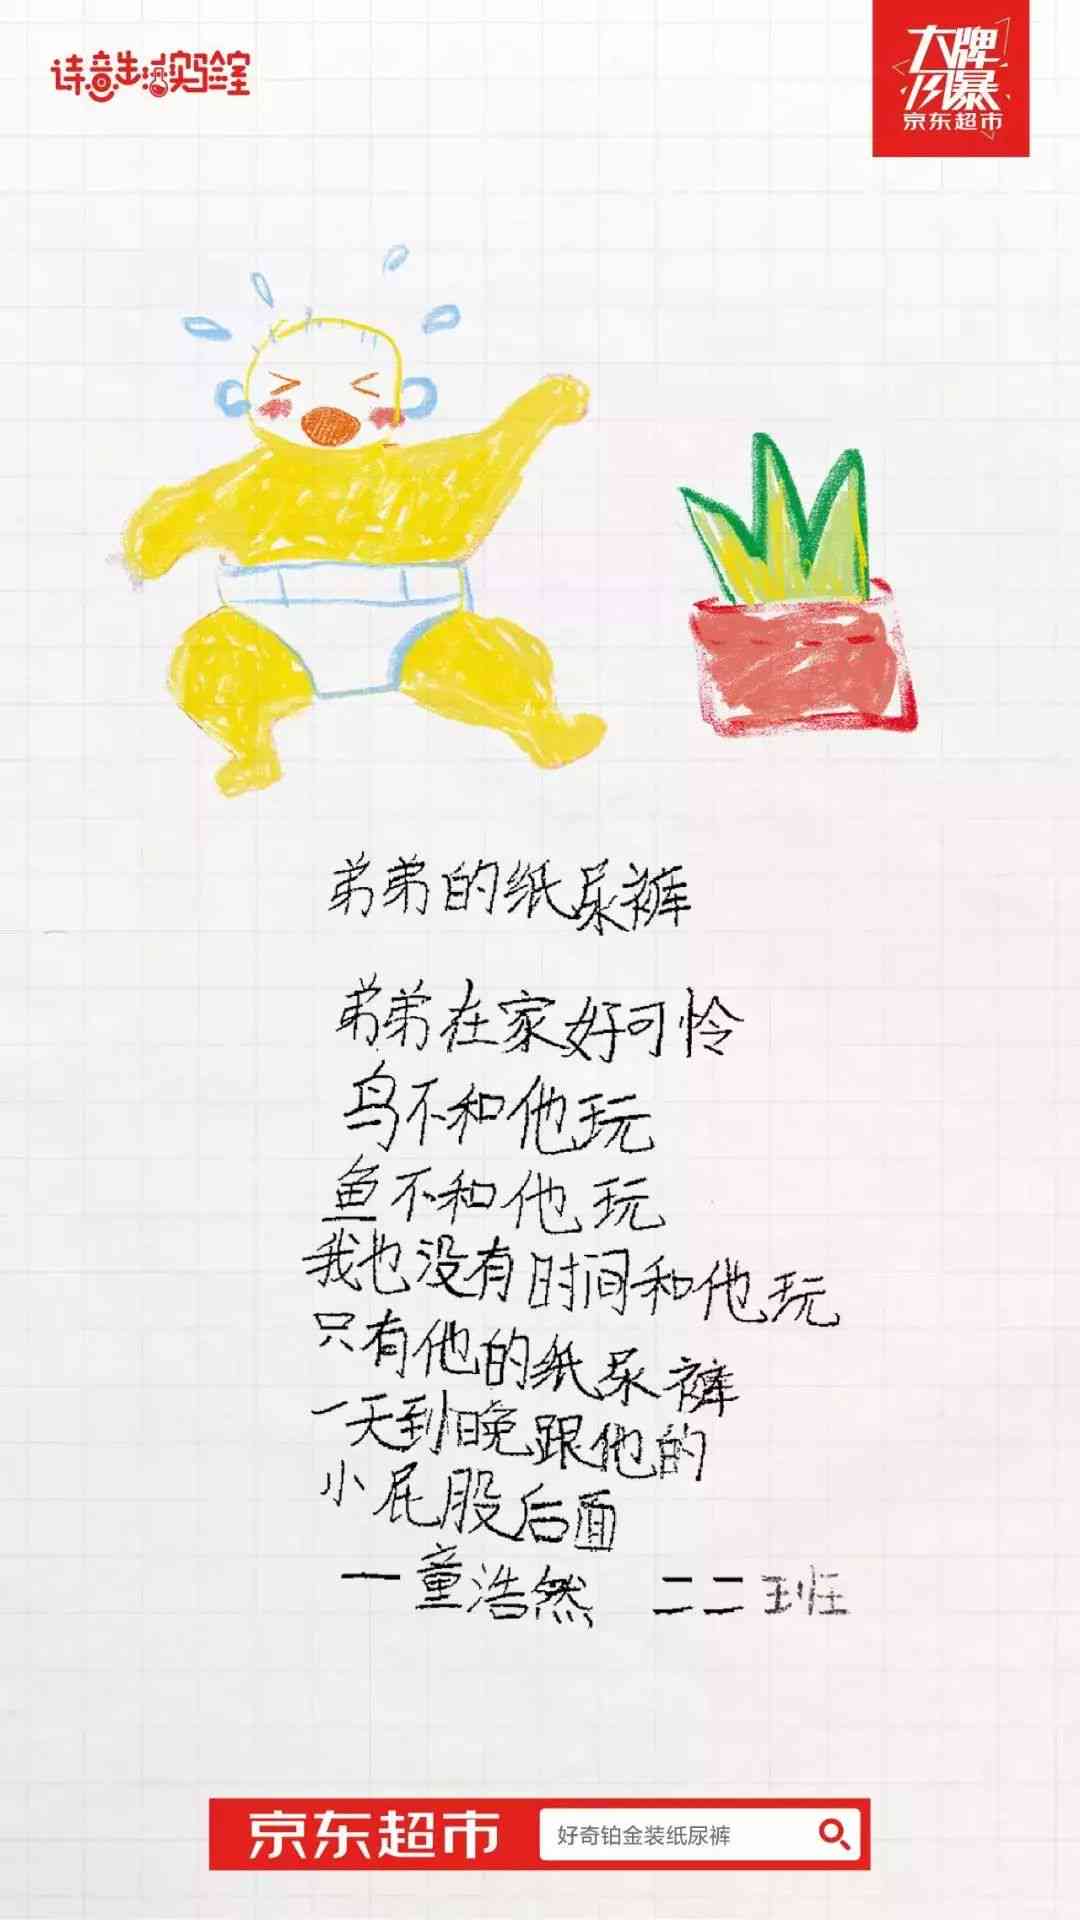 诗意生活实验室
大牌
风暴
京东超市
弟弟的纸尿裤
弟弟在家好可怜
鸟不和他玩
鱼不和他玩
我也没有时间和他玩
只有他的纸尿裤
一天到晚跟他的
小屁股后面
一童浩然 二二班
京东超市 好奇铂金装纸尿裤